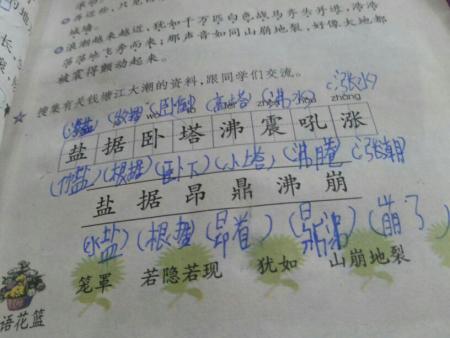 再近些,只见
城墙。
浪潮越来越近,犹如千万匹白色战马齐头并进,浩浩
荡荡地飞奔而来;那声音如同山崩地裂,好像大地都
被震得颤动起来。
搜集有关钱塘江大潮的资料,跟同学们交流。
(根据) (卧倒) (高塔) (沸水) (涨水)
zhèn hǒu zhǎng
盐 据 卧 塔 沸 震 吼 涨
(加盐) (根据) (卧下) (上塔) (沸腾) (涨潮)
盐 据 昂 鼎 沸 崩
(水盐) (根据) (昂首) (鼎沸) (崩了)
笼罩 若隐若现 犹如 山崩地裂
语花篮